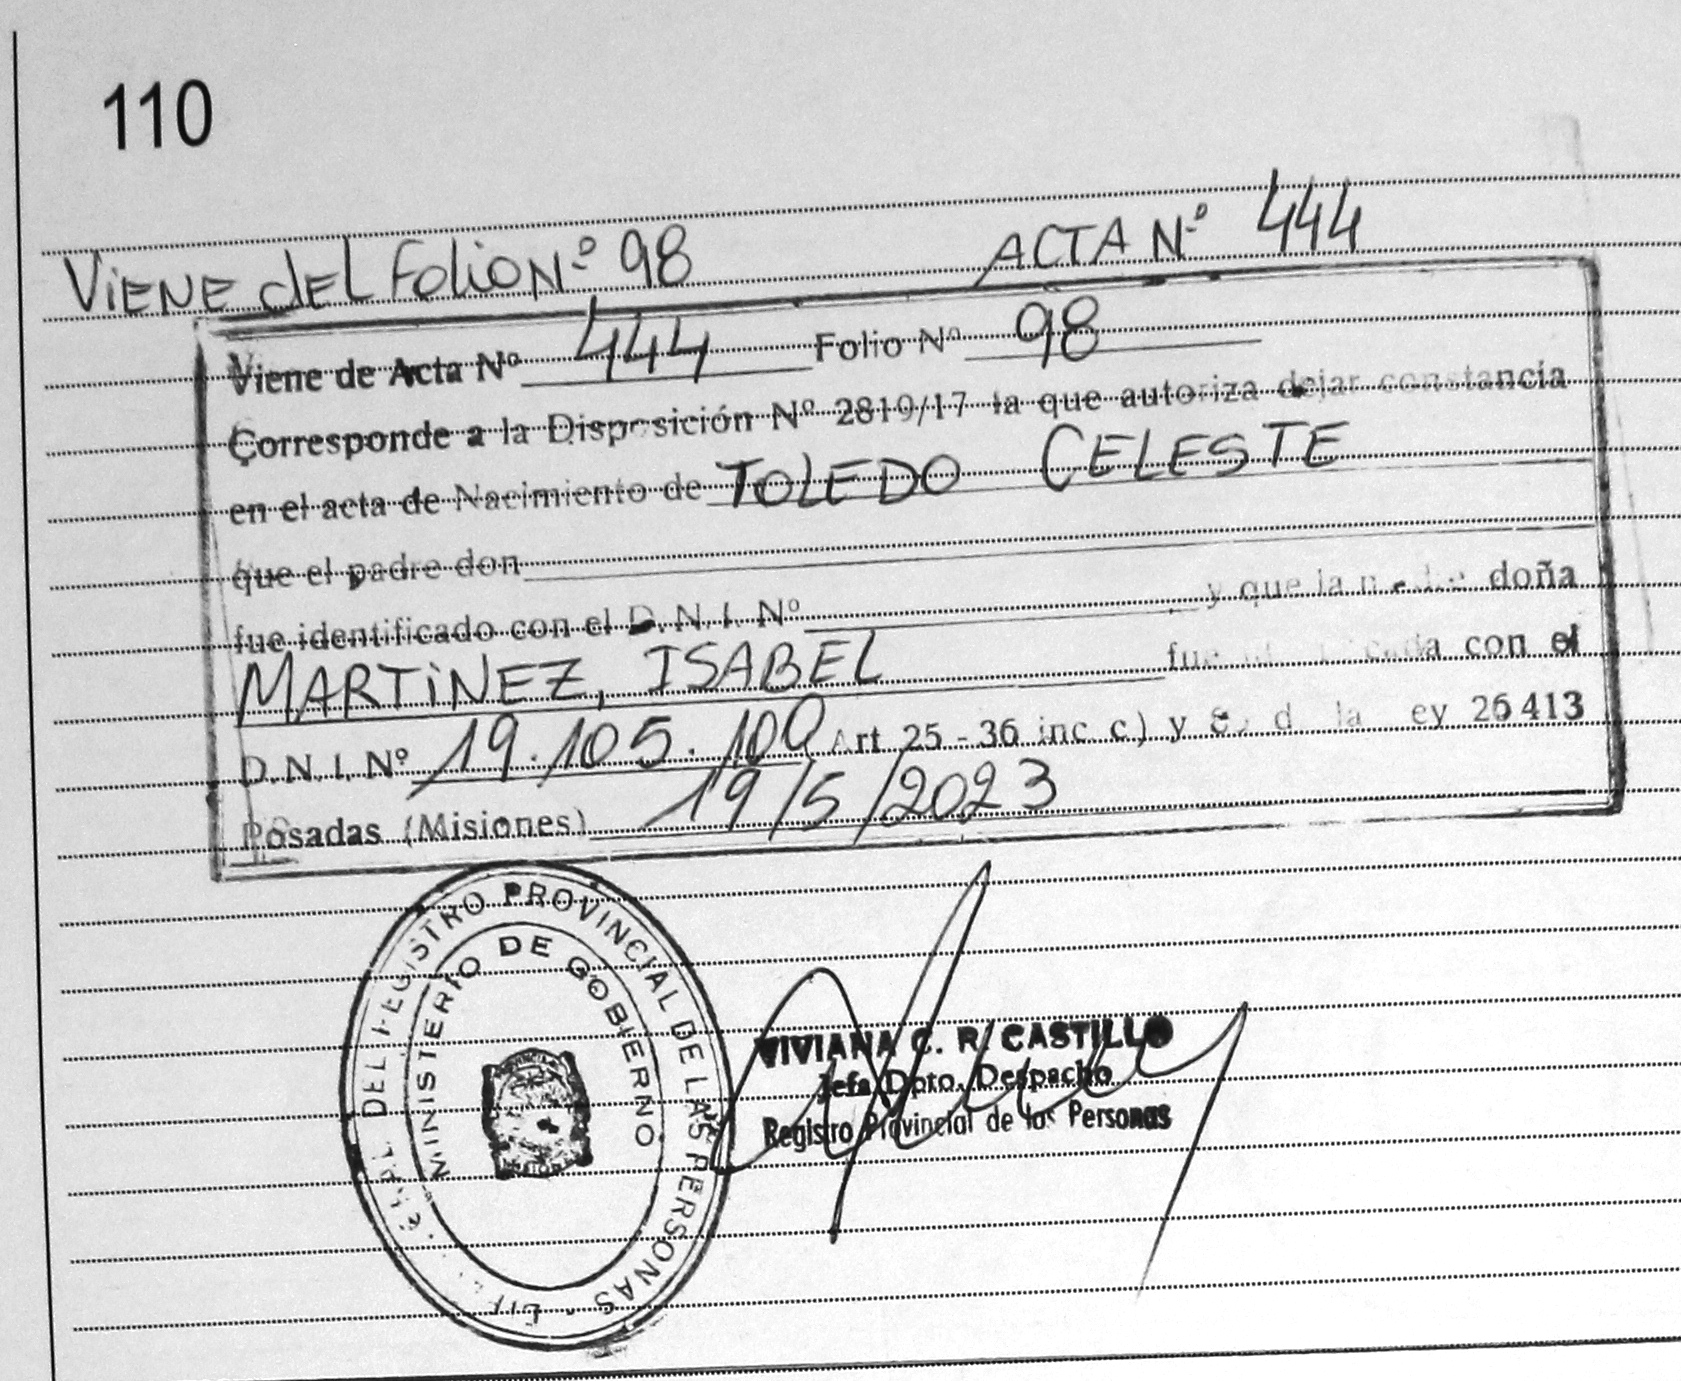 110
VIENE dEL FOLIO Nº 98 ACTA Nº 444
Viene de Acta Nº 444 Folio Nº 98
Corresponde a la Disposición Nº 2819/17 la que autoriza dejar constancia
en el acta de Nacimiento de TOLEDO CELESTE
que el padre don
fue identificado con el D.N.I. Nº y que la madre doña
MARTINEZ, ISABEL fue con el
D.N.I. Nº 19.105.100 Art 25 - 36 inc c) y la ley 26413
Posadas (Misiones) 19/5/2023
DEL REGISTRO PROVINCIAL DE LAS PERSONAS
MINISTERIO DE GOBIERNO
VIVIANA C. R. CASTILLO
Jefa Dpto. Despacho
Registro Provincial de las Personas